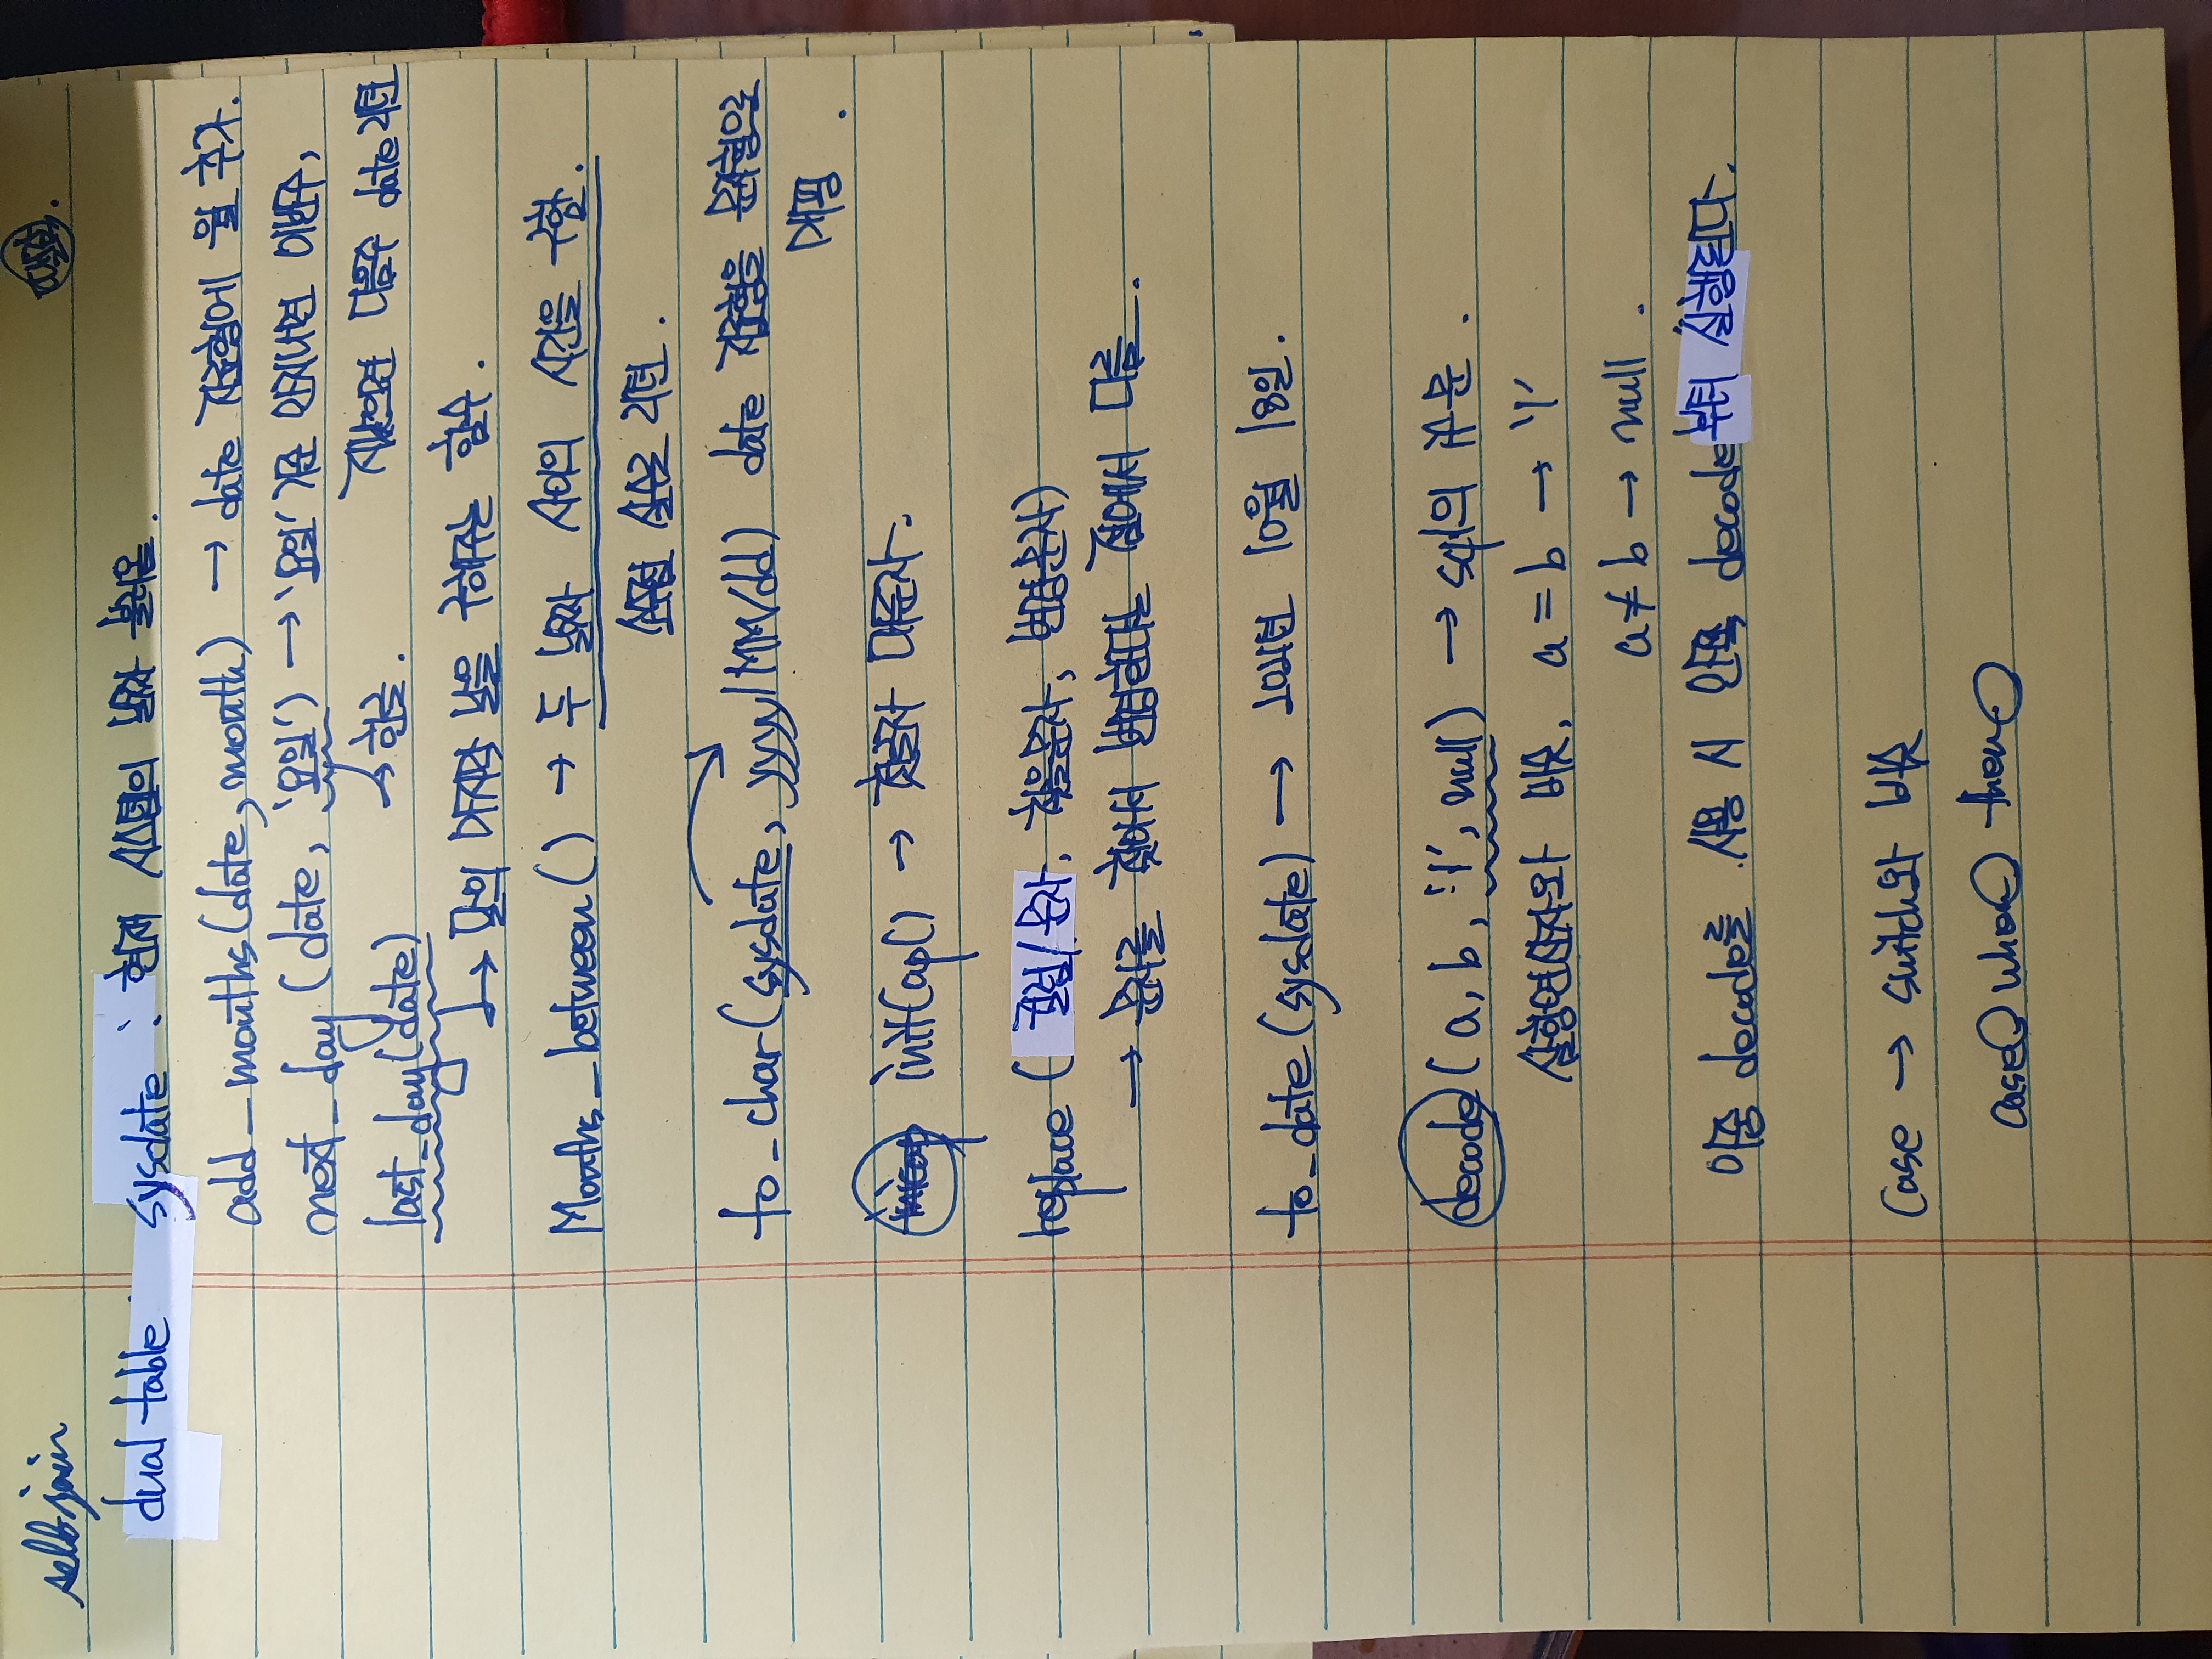 self join
dual table sysdate : 현재 시스템의 날짜 불러옴.
add_months(date, month) → date 자료형에 월 추가.
next_day (date, '요일') → '요일' 기준 안지나면 이번주,
→ 한글. 지났으면 다음주 date 리턴
last_day(date)
→ 달의 마지막 날을 구해주는 함수.
Months_between() → 두 날짜 사이의 시간을 구함.
소수점 실수로 리턴.
to_char(sysdate, yyyy/MM/dd) date 자료형을 문자형으로
매핑.
initCap() → 첫글자 대문자.
replace ( 컬럼/문자, 찾을문자, 변경문자)
→ 문자를 찾아서 변경한다는 점에서 다름.
to_date(sysdate) → 2021년 10월 18일.
decode (a, b, '1', null) → sql의 if문.
삼항연산자와 비슷. a = b → '1'
a ≠ b → null.
이중 decode를 사용 시 안쪽 decode부터 실행된다.
Case → switch와 비슷
case○ when○ then○